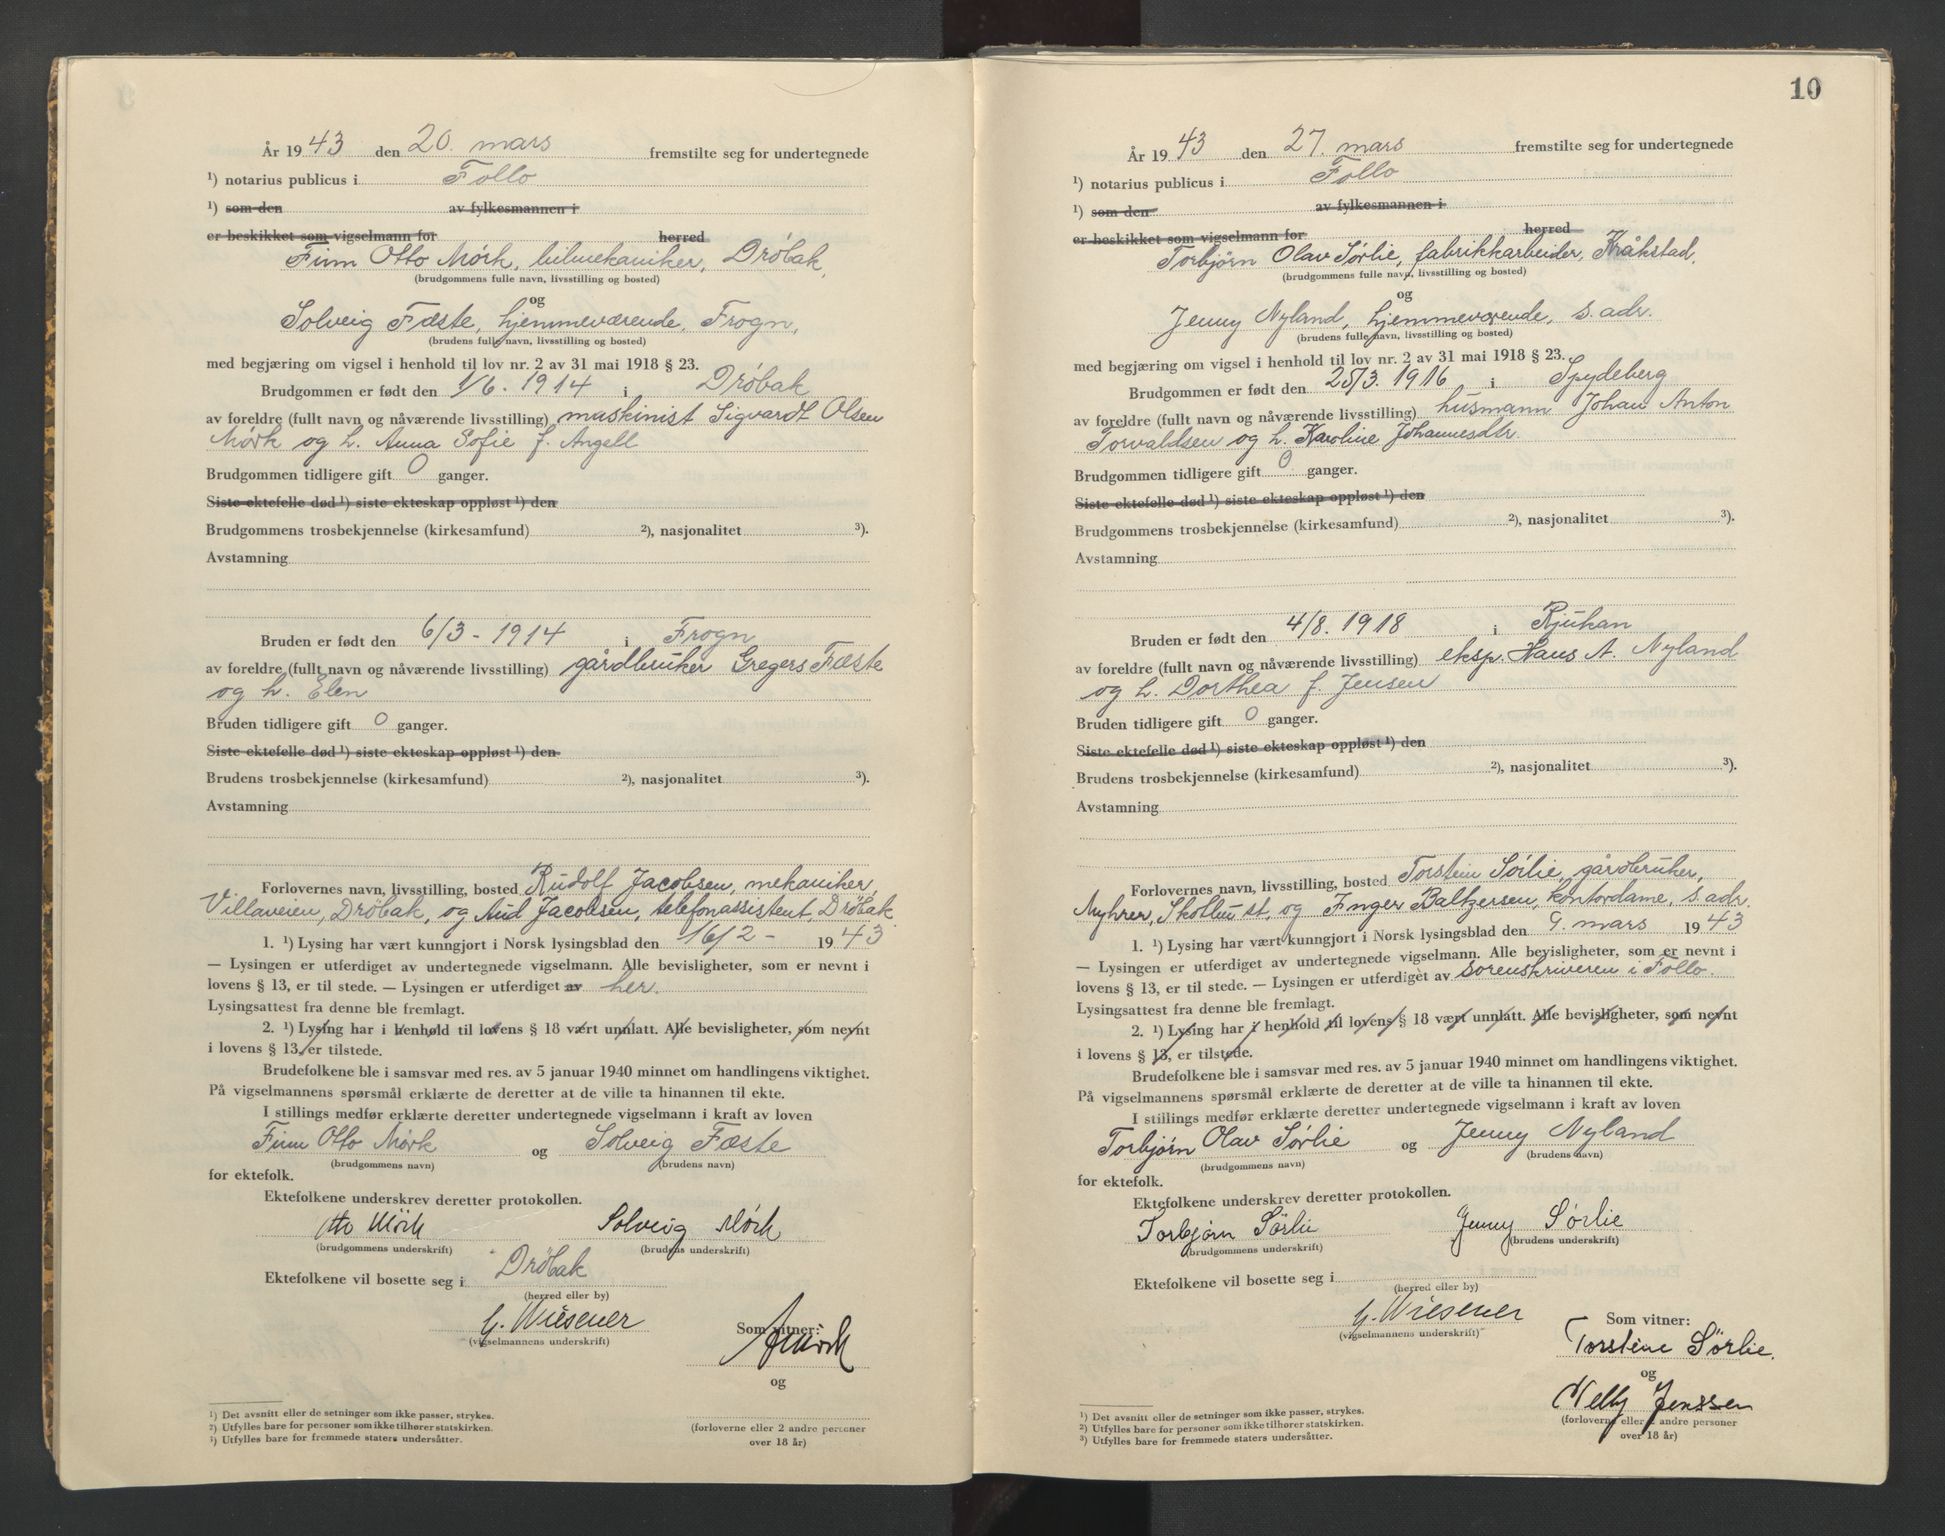 År 1943 den 20. mars fremstilte seg for undertegnede
¹) notarius publicus i Follo
¹) som den av fylkesmannen i
er beskikket som vigselmann for herred
Finn Otto Mørk, bilmekaniker, Drøbak,
(brudgommens fulle navn, livsstilling og bosted)
og
Solveig Fæste, hjemmeværende, Frogn,
(brudens fulle navn, livsstilling og bosted)
med begjæring om vigsel i henhold til lov nr. 2 av 31 mai 1918 § 23.
Brudgommen er født den 1/6. 1914 i Drøbak
av foreldre (fullt navn og nåværende livsstilling) maskinist Sigvardt Olsen
Mørk og h. Anna Sofie f. Angell
Brudgommen tidligere gift 0 ganger.
Siste ektefelle død ¹) siste ekteskap oppløst ¹) den
Brudgommens trosbekjennelse (kirkesamfund) ²), nasjonalitet ³).
Avstamning
Bruden er født den 6/3 - 1914 i Frogn
av foreldre (fullt navn og nåværende livsstilling) gårdbruker Gregers Fæste
og h. Elen
Bruden tidligere gift 0 ganger.
Siste ektefelle død ¹) siste ekteskap oppløst ¹) den
Brudens trosbekjennelse (kirkesamfund) ²), nasjonalitet ³).
Avstamning
Forlovernes navn, livsstilling, bosted Rudolf Jacobsen, mekaniker,
Villaveien, Drøbak, og Aud Jacobsen, telefonassistent, Drøbak
1. ¹) Lysing har vært kunngjort i Norsk lysingsblad den 16/2 - 1943
— Lysingen er utferdiget av undertegnede vigselmann. Alle bevisligheter, som er nevnt i
lovens § 13, er til stede. — Lysingen er utferdiget av her.
Lysingsattest fra denne ble fremlagt.
2. ¹) Lysing har i henhold til lovens § 18 vært unnlatt. Alle bevisligheter, som nevnt
i lovens § 13, er tilstede.
Brudefolkene ble i samsvar med res. av 5 januar 1940 minnet om handlingens viktighet.
På vigselmannens spørsmål erklærte de deretter at de ville ta hinannen til ekte.
I stillings medfør erklærte deretter undertegnede vigselmann i kraft av loven
Finn Otto Mørk og Solveig Fæste
(brudgommens navn) (brudens navn)
for ektefolk.
Ektefolkene underskrev deretter protokollen.
Otto Mörk Solveig Mörk
(brudgommens underskrift) (brudens underskrift)
Ektefolkene vil bosette seg i Drøbak
(herred eller by)
G. Wiesener Som vitner:
(vigselmannens underskrift)
og
(forloverne eller 2 andre personer
over 18 år)
¹) Det avsnitt eller de setninger som ikke passer, strykes.
²) Utfylles bare for personer som ikke tilhører statskirken.
³) Utfylles bare for fremmede staters undersåtter.
10
År 1943 den 27. mars fremstilte seg for undertegnede
¹) notarius publicus i Follo
¹) som den av fylkesmannen i
er beskikket som vigselmann for herred
Torbjørn Olav Sørlie, fabrikkarbeider, Kråkstad,
(brudgommens fulle navn, livsstilling og bosted)
og
Jenny Nyland, hjemmeværende, s. adr.
(brudens fulle navn, livsstilling og bosted)
med begjæring om vigsel i henhold til lov nr. 2 av 31 mai 1918 § 23.
Brudgommen er født den 25/3. 1916 i Spydeberg
av foreldre (fullt navn og nåværende livsstilling) husmann Johan Anton
Torvaldsen og h. Karoline Johannesdtr.
Brudgommen tidligere gift 0 ganger.
Siste ektefelle død ¹) siste ekteskap oppløst ¹) den
Brudgommens trosbekjennelse (kirkesamfund) ²), nasjonalitet ³).
Avstamning
Bruden er født den 4/8. 1918 i Rjukan
av foreldre (fullt navn og nåværende livsstilling) eksp. Hans A. Nyland
og h. Dorthea f. Jensen
Bruden tidligere gift 0 ganger.
Siste ektefelle død ¹) siste ekteskap oppløst ¹) den
Brudens trosbekjennelse (kirkesamfund) ²), nasjonalitet ³).
Avstamning
Forlovernes navn, livsstilling, bosted Torstein Sørlie, gårdbruker,
Myhrer, Skotbu st, og Inger Baltzersen, kontordame, s. adr.
1. ¹) Lysing har vært kunngjort i Norsk lysingsblad den 9. mars 1943
— Lysingen er utferdiget av undertegnede vigselmann. Alle bevisligheter, som er nevnt i
lovens § 13, er til stede. — Lysingen er utferdiget av sorenskriveren i Follo.
Lysingsattest fra denne ble fremlagt.
2. ¹) Lysing har i henhold til lovens § 18 vært unnlatt. Alle bevisligheter, som nevnt
i lovens § 13, er tilstede.
Brudefolkene ble i samsvar med res. av 5 januar 1940 minnet om handlingens viktighet.
På vigselmannens spørsmål erklærte de deretter at de ville ta hinannen til ekte.
I stillings medfør erklærte deretter undertegnede vigselmann i kraft av loven
Torbjørn Olav Sørlie og Jenny Nyland
(brudgommens navn) (brudens navn)
for ektefolk.
Ektefolkene underskrev deretter protokollen.
Torbjørn Sørlie Jenny Sørlie
(brudgommens underskrift) (brudens underskrift)
Ektefolkene vil bosette seg i
(herred eller by)
G. Wiesener Som vitner:
(vigselmannens underskrift)
Torsteine Sørlie.
og
Nelly Jenssen
(forloverne eller 2 andre personer
over 18 år)
¹) Det avsnitt eller de setninger som ikke passer, strykes.
²) Utfylles bare for personer som ikke tilhører statskirken.
³) Utfylles bare for fremmede staters undersåtter.